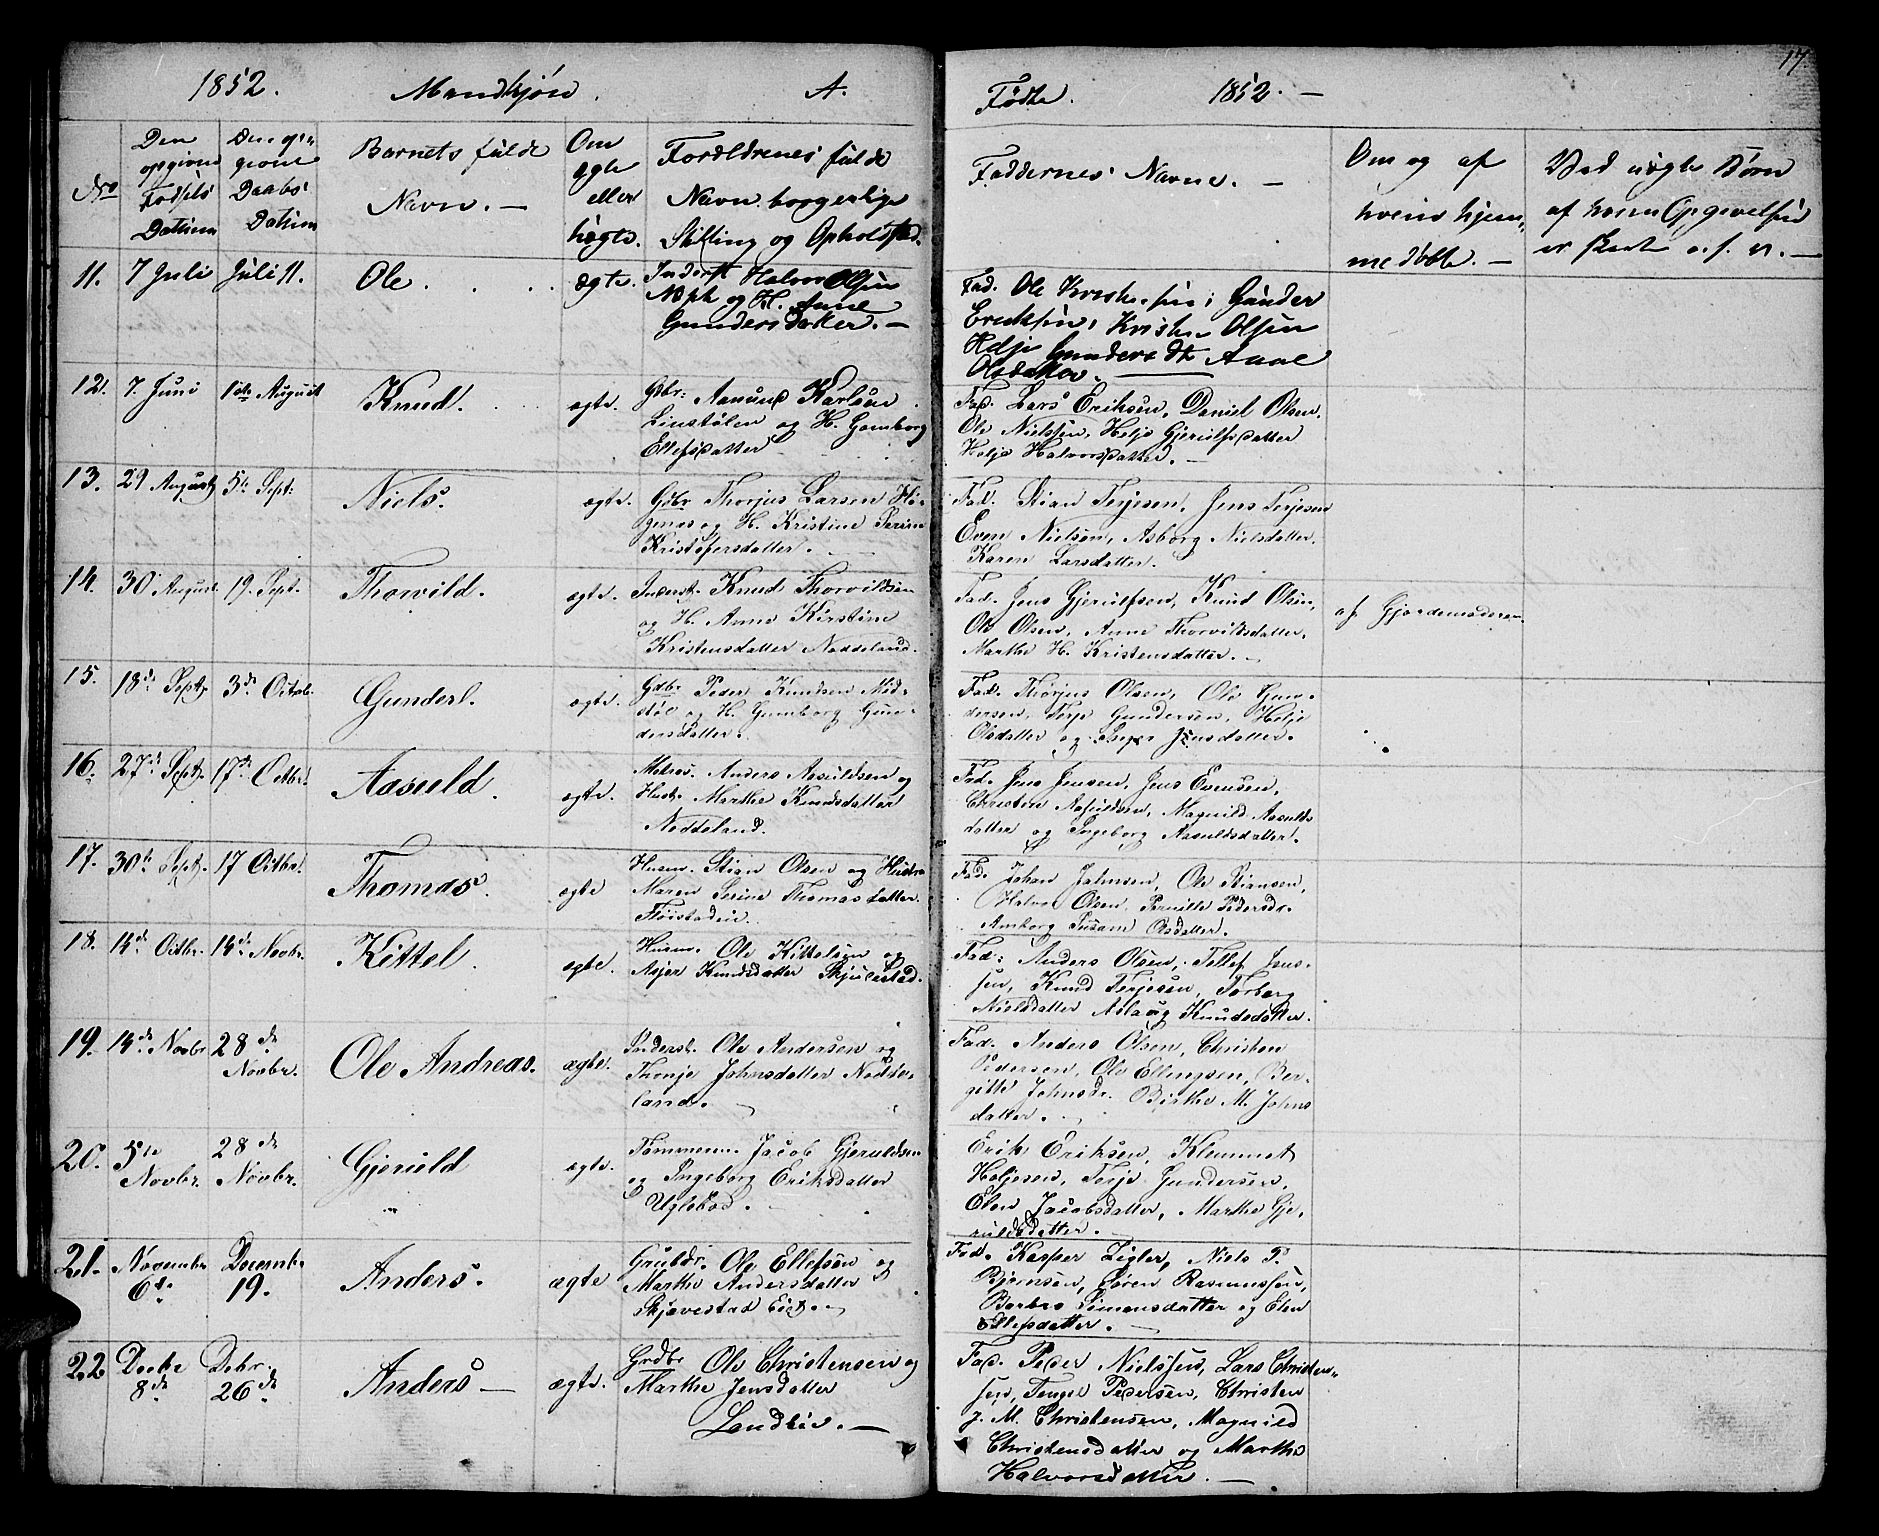 1852. Mandkjøn. A.
No
Den opgivne Fødsels Dattum
Den opgivne Daabs Dattum
Barnets fulde Navn. —
Om ægte eller uægte.
Forældrenes fulde
Navn borgerlige
Stilling og Opholdsted.
11. 7 Juli Juli 11. Ole. ægte. Inderst Halvor Olsen
og H. Anne
Gundersdatter. —
12. 7. Juni 1ste August Knud. ægte. Gbr: Aanund Karlsen
Linstølen og H. Gomborg
Ellefsdatter
13. 29 August 5te Sept: Niels. ægte. Gdbr Thorjus Larsen
og H. Kristine Serine
Kristofersdatter.
14. 30 August 19. Sept. Thorvild. ægte. Inderst. Knud Thorvildsen
og H. Anne Kirstine
Kristensdatter Neddeland.
15. 18de Septr 3de Octob. Gunder. ægte. Gdbr Peder Knudsen
og H. Gumborg Gun-
dersdatter.
16. 27de Septr. 17de Octbr. Aasuld. ægte. Matros. Anders Aasuldsen og
Hust. Marthe Knudsdatter
Neddeland.
17. 30te Septr. 17 Octbr. Thomas. ægte Husm. Stian Olsen og Hustru
Maren Serine Thomasdatter
Fløistadeie.
18. 14de Octbr. 14de Novbr. Kittel. ægte. Husm. Ole Kittelsen og
Asjer Knudsdatter Skjulestad.
19. 14de Novbr 28de Novbr. Ole Andreas. ægte. Inderst. Ole Andersen og
Thonje Johnsdatter Nedde-
land.
20. 5te Novbr. 28de Novbr. Gjeruld ægte. Tømmerm. Jacob Gjeruldsen
og Ingeborg Eriksdatter
Uglekod.
21. November 6te December 19. Anders. ægte Grubdr. Ole Ellefsen og
Marthe Andersdatter
Skjævestad Eie.
22 Decbr 8de Debr. 26de Anders — ægte. Grdbr Ole Christensen og
Marthe Jensdatter
Landvie. —
17.
Fødte. 1852. —
Faddernes Navne. —
Om og af
hvem hjem-
medøbte. —
Ved uægte Børn
af hvem Opgivelsen
er skeet o.s.v. —
Fad. Ole Kristensen, Gunder
Eriksen, Kristen Olsen
Helje Gundersdtr Anne
Olsdatter.
Fad. Lars Eriksen, Daniel Olsen,
Ole Nielsen, Helje Gjerulfsdatter
Helje Halvorsdatter. —
Fad. Stian Terjesen, Jens Terjesen
Even Nielsen, Asborg Nielsdatter,
Karen Larsdatter.
Fad. Jens Gjerulfsen, Knud Olsen,
Ole Olsen, Anne Thorvildsdatter,
Marthe H. Kristensdatter. af Gjordemoderen
Fad. Thorjus Olsen, Ole Gun-
dersen, Terje Gundersen, Helje
Olsdatter og Inger Jensdatter.
Fad. Jens Jensen, Jens Evensen,
Christen Aasuldsen, Magnild Aasulds
datter og Ingeborg Aasuldsdatter.
Fad. Johan Johnsen, Ole Stiansen,
Halvor Olsen, Pernille Pedersdr.
Amborg Susane Olsdatter.
Fad: Anders Olsen, Tellef Jens-
sen, Knud Terjesen, Torborg
Nielsdatter Aslaug Knudsdatter.
Fad. Anders Olsen, Christen
Pedersen, Ole Ellingsen, Ber-
gitte Johnsdr. Birthe M. Johns
datter.
Erik Eriksen, Klemmet
Heljesen, Terje Gundersen,
Elen Jacobsdatter, Marthe Gje-
ruldsdatter. —
Fad. Kasper Zigler, Niels P.
Bjørnsen, Søren Rasmussen,
Barbro Simonsdatter og Elen
Ellefsdatter. —
Fad. Peder Nielssen, Lars Christen-
sen, Tengel Pedersen, Christen
J. M. Christensen, Magnild
Christensdatter og Marthe
Halvorsdatter. —